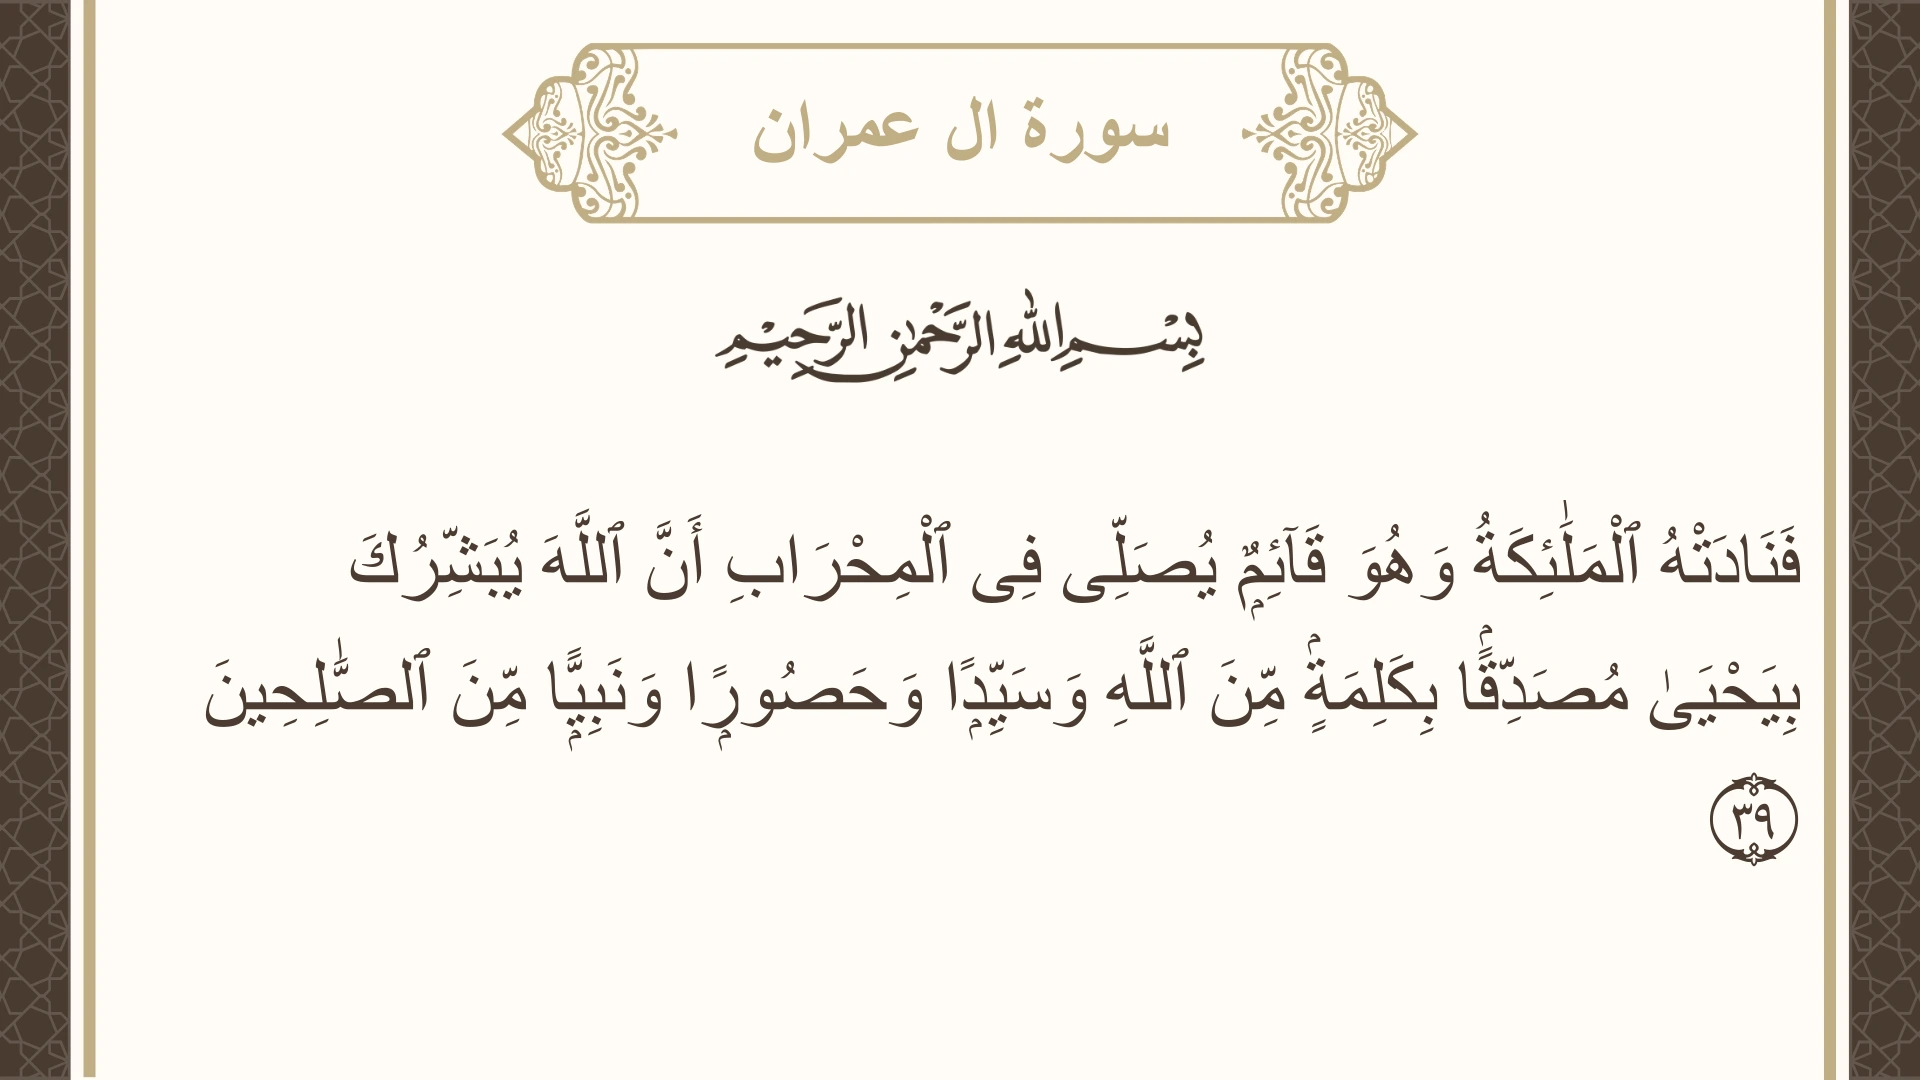 سورة ال عمران
بِسْمِ اللهِ الرَّحْمٰنِ الرَّحِيْمِ
فَنَادَتْهُ ٱلْمَلَٰٓئِكَةُ وَهُوَ قَآئِمٌۭ يُصَلِّى فِى ٱلْمِحْرَابِ أَنَّ ٱللَّهَ يُبَشِّرُكَ
بِيَحْيَىٰ مُصَدِّقًۢا بِكَلِمَةٍۢ مِّنَ ٱللَّهِ وَسَيِّدًۭا وَحَصُورًۭا وَنَبِيًّۭا مِّنَ ٱلصَّٰلِحِينَ
٣٩